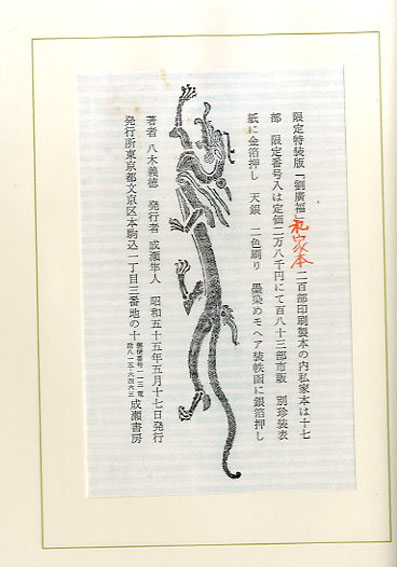 限定特装版『劉廣福』私家本二百部印刷製本の内私家本は十七
部 限定番号入は定価二万八千円にて百八十三部市販 別珍装表
紙に金箔押し 天銀 二色刷り 墨染めモヘア装帙函に銀箔押し
著者 八木義徳 発行者 成瀬隼人 昭和五十五年五月十七日発行
発行所東京都文京区本駒込一丁目三番地の十 郵便番号一一三電話八一五・六四六三 成瀬書房